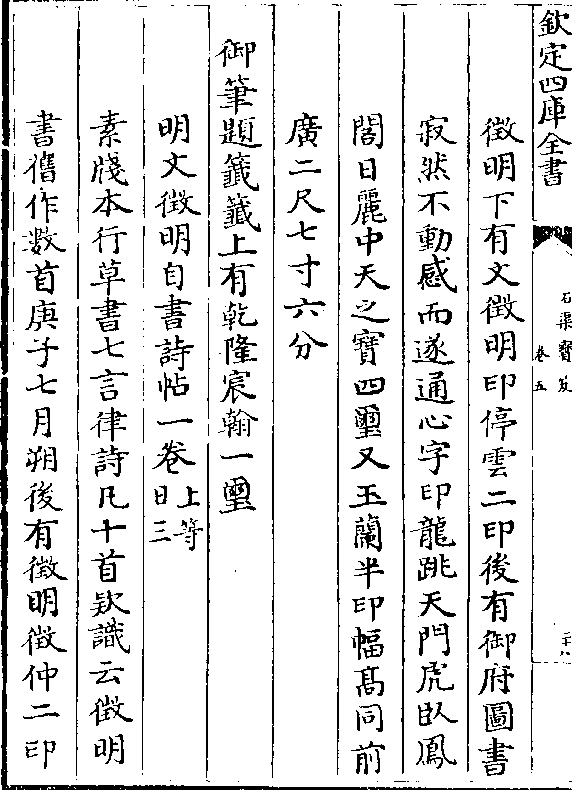 欽定四庫全書
石渠寶笈
卷五
徵明下有文徵明印停雲二印後有御府圖書
寂然不動感而遂通心字印龍跳天門虎卧鳳
閣日麗中天之寶四璽又玉蘭半印幅髙同前
廣二尺七寸六分
御筆題籤籤上有乾隆宸翰一璽
明文徵明自書詩帖一卷上等
日三
素牋本行草書七言律詩凡十首欵識云徵明
書舊作數首庚子七月朔後有徵明徵仲二印